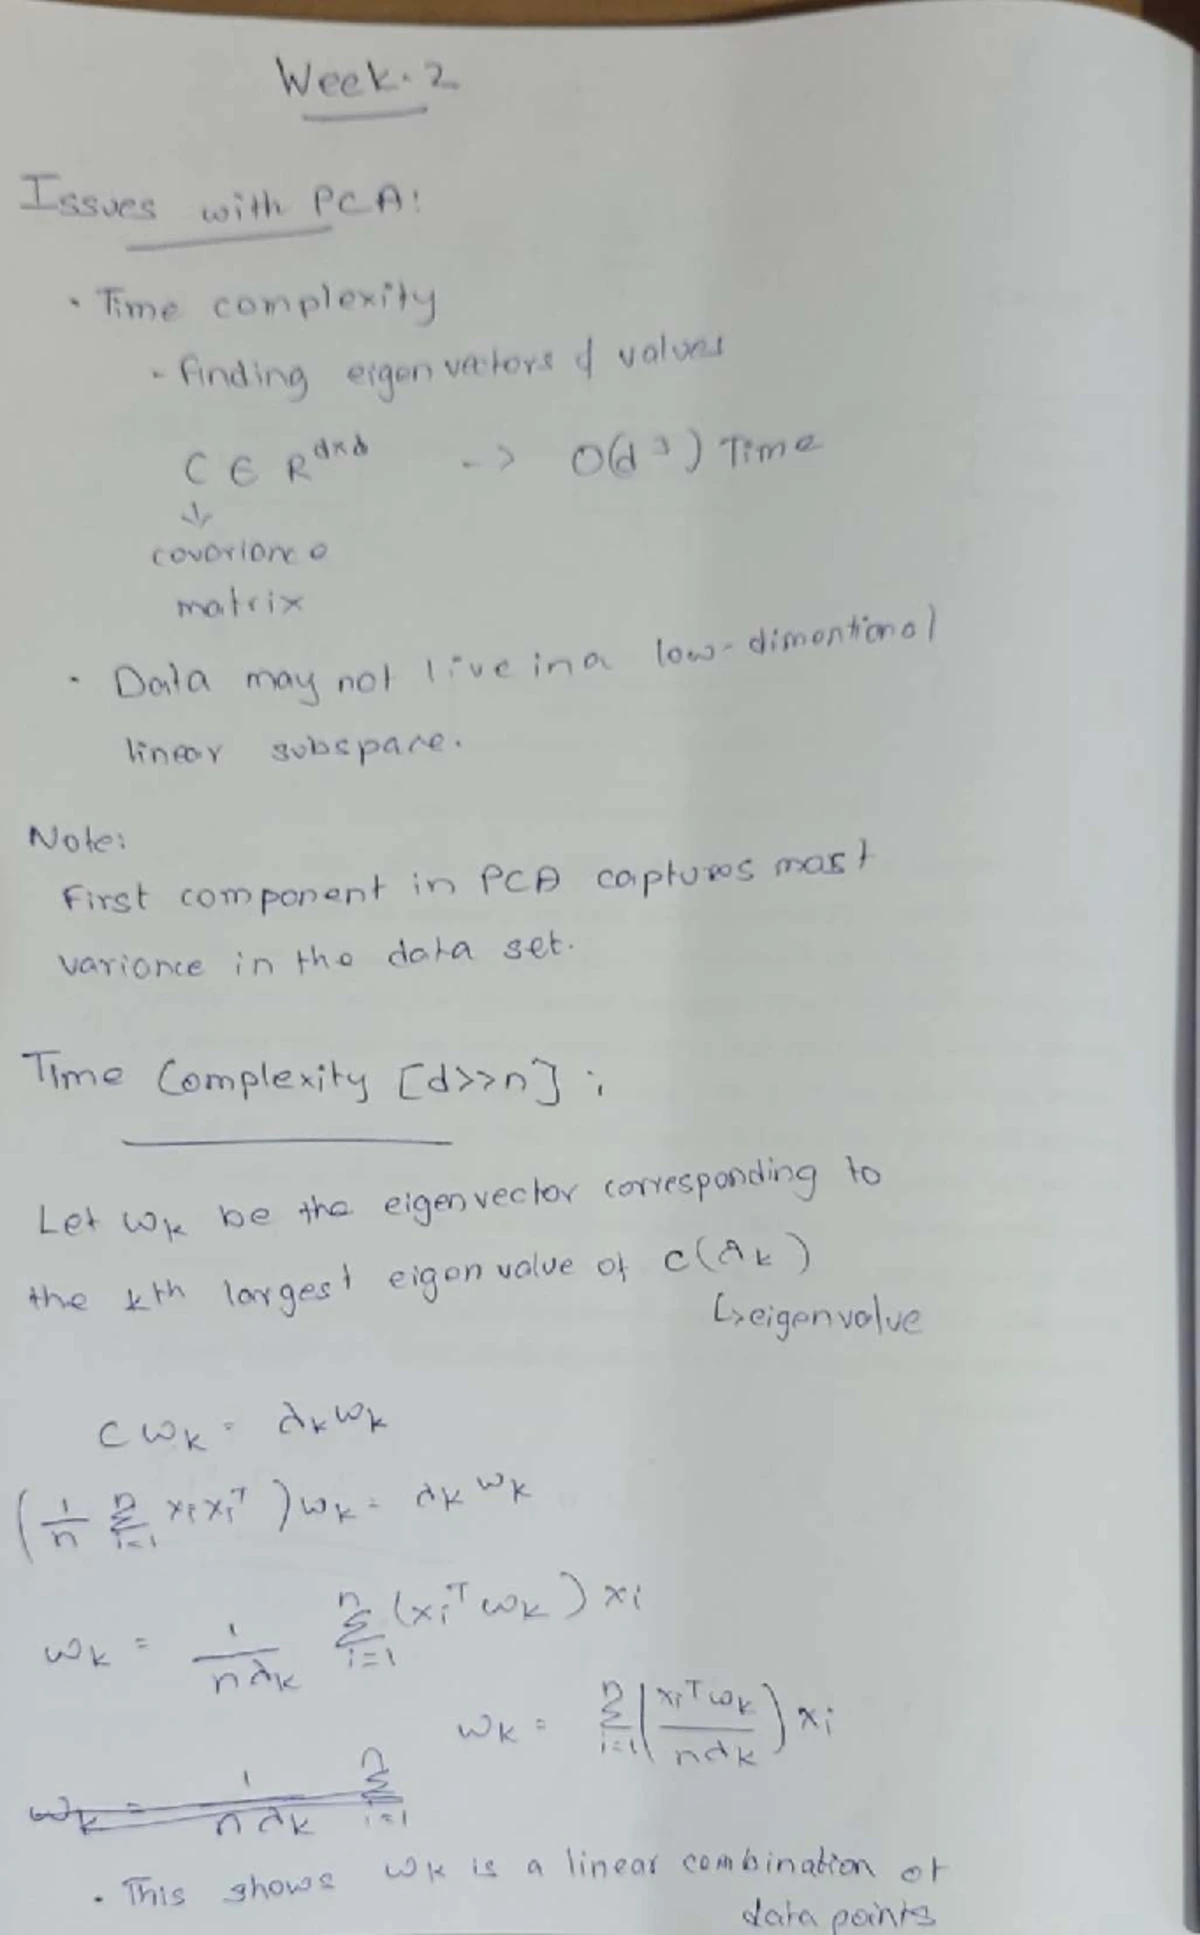 Week. 2
Issues with PCA:
• Time complexity
- finding eigen vectors & values
C ∈ R^{d×d} -> O(d^3) Time
↓
covariance
matrix
• Data may not live in a low-dimentional
linear subspace.
Note:
First component in PCA captures most
variance in the data set.
Time Complexity [d>>n] :
Let w_k be the eigenvector corresponding to
the kth largest eigen value of C(λ_k)
↳eigenvalue
C w_k = λ_k w_k
(1/n Σ_{i=1}^{n} x_i x_i^T) w_k = λ_k w_k
w_k = 1/(nλ_k) Σ_{i=1}^{n} (x_i^T w_k) x_i
w_k = Σ_{i=1}^{n} (x_i^T w_k / nλ_k) x_i
w_k = 1/(nλ_k) Σ_{i=1}^{n}
• This shows w_k is a linear combination of
data points